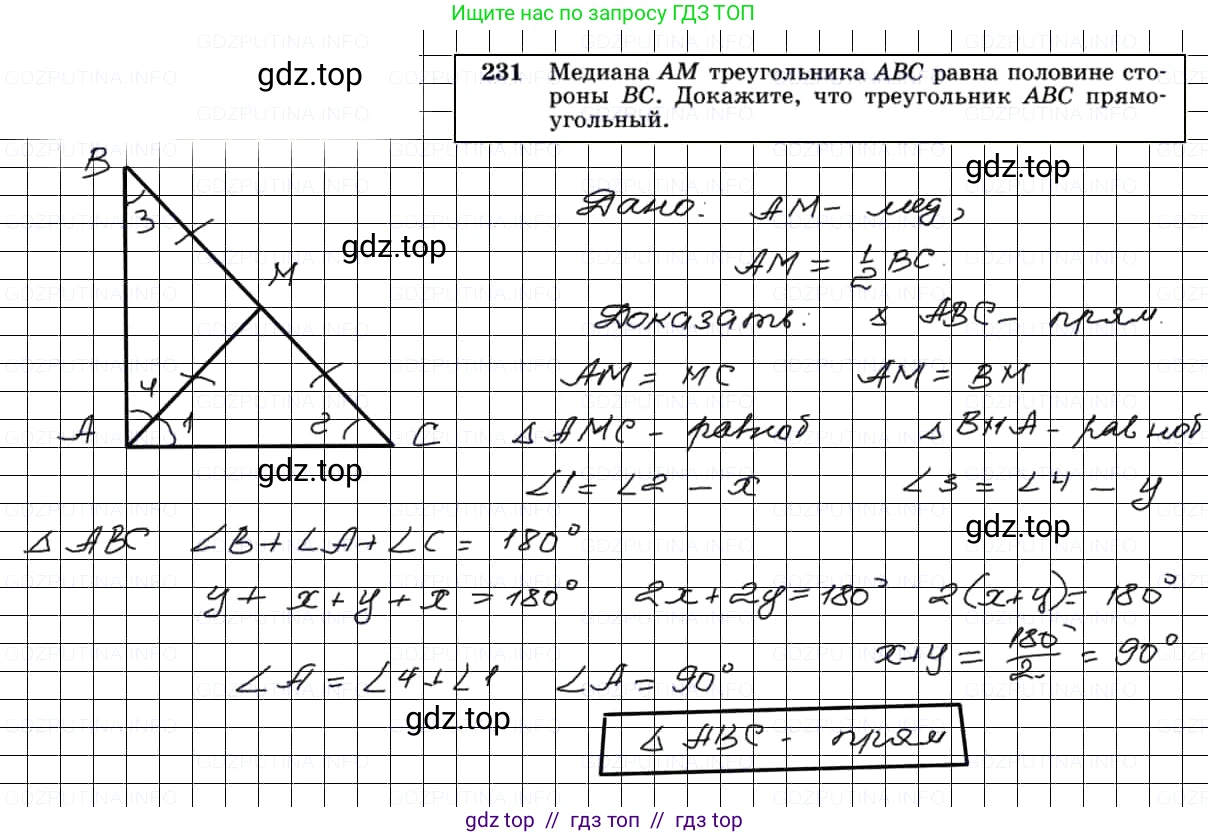 Ищите нас по запросу ГДЗ ТОП
gdz.top
231 Медиана AM треугольника ABC равна половине сто-
роны BC. Докажите, что треугольник ABC прямо-
угольный.
gdz.top
B
3
Дано: AM - мед,
gdz.top
M
AM = 1/2 BC.
Доказать: △ ABC - прям.
4
AM = MC AM = BM
A 1 2 C
△ AMC - равноб △ BMA - равноб
gdz.top
∠1 = ∠2 - x ∠3 = ∠4 - y
gdz.top
△ ABC ∠B + ∠A + ∠C = 180°
y + x + y + x = 180° 2x + 2y = 180° 2(x+y) = 180°
x+y = 180°/2 = 90°
∠A = ∠4 + ∠1 ∠A = 90°
gdz.top
△ ABC - прям
gdz top // гдз топ // gdz top